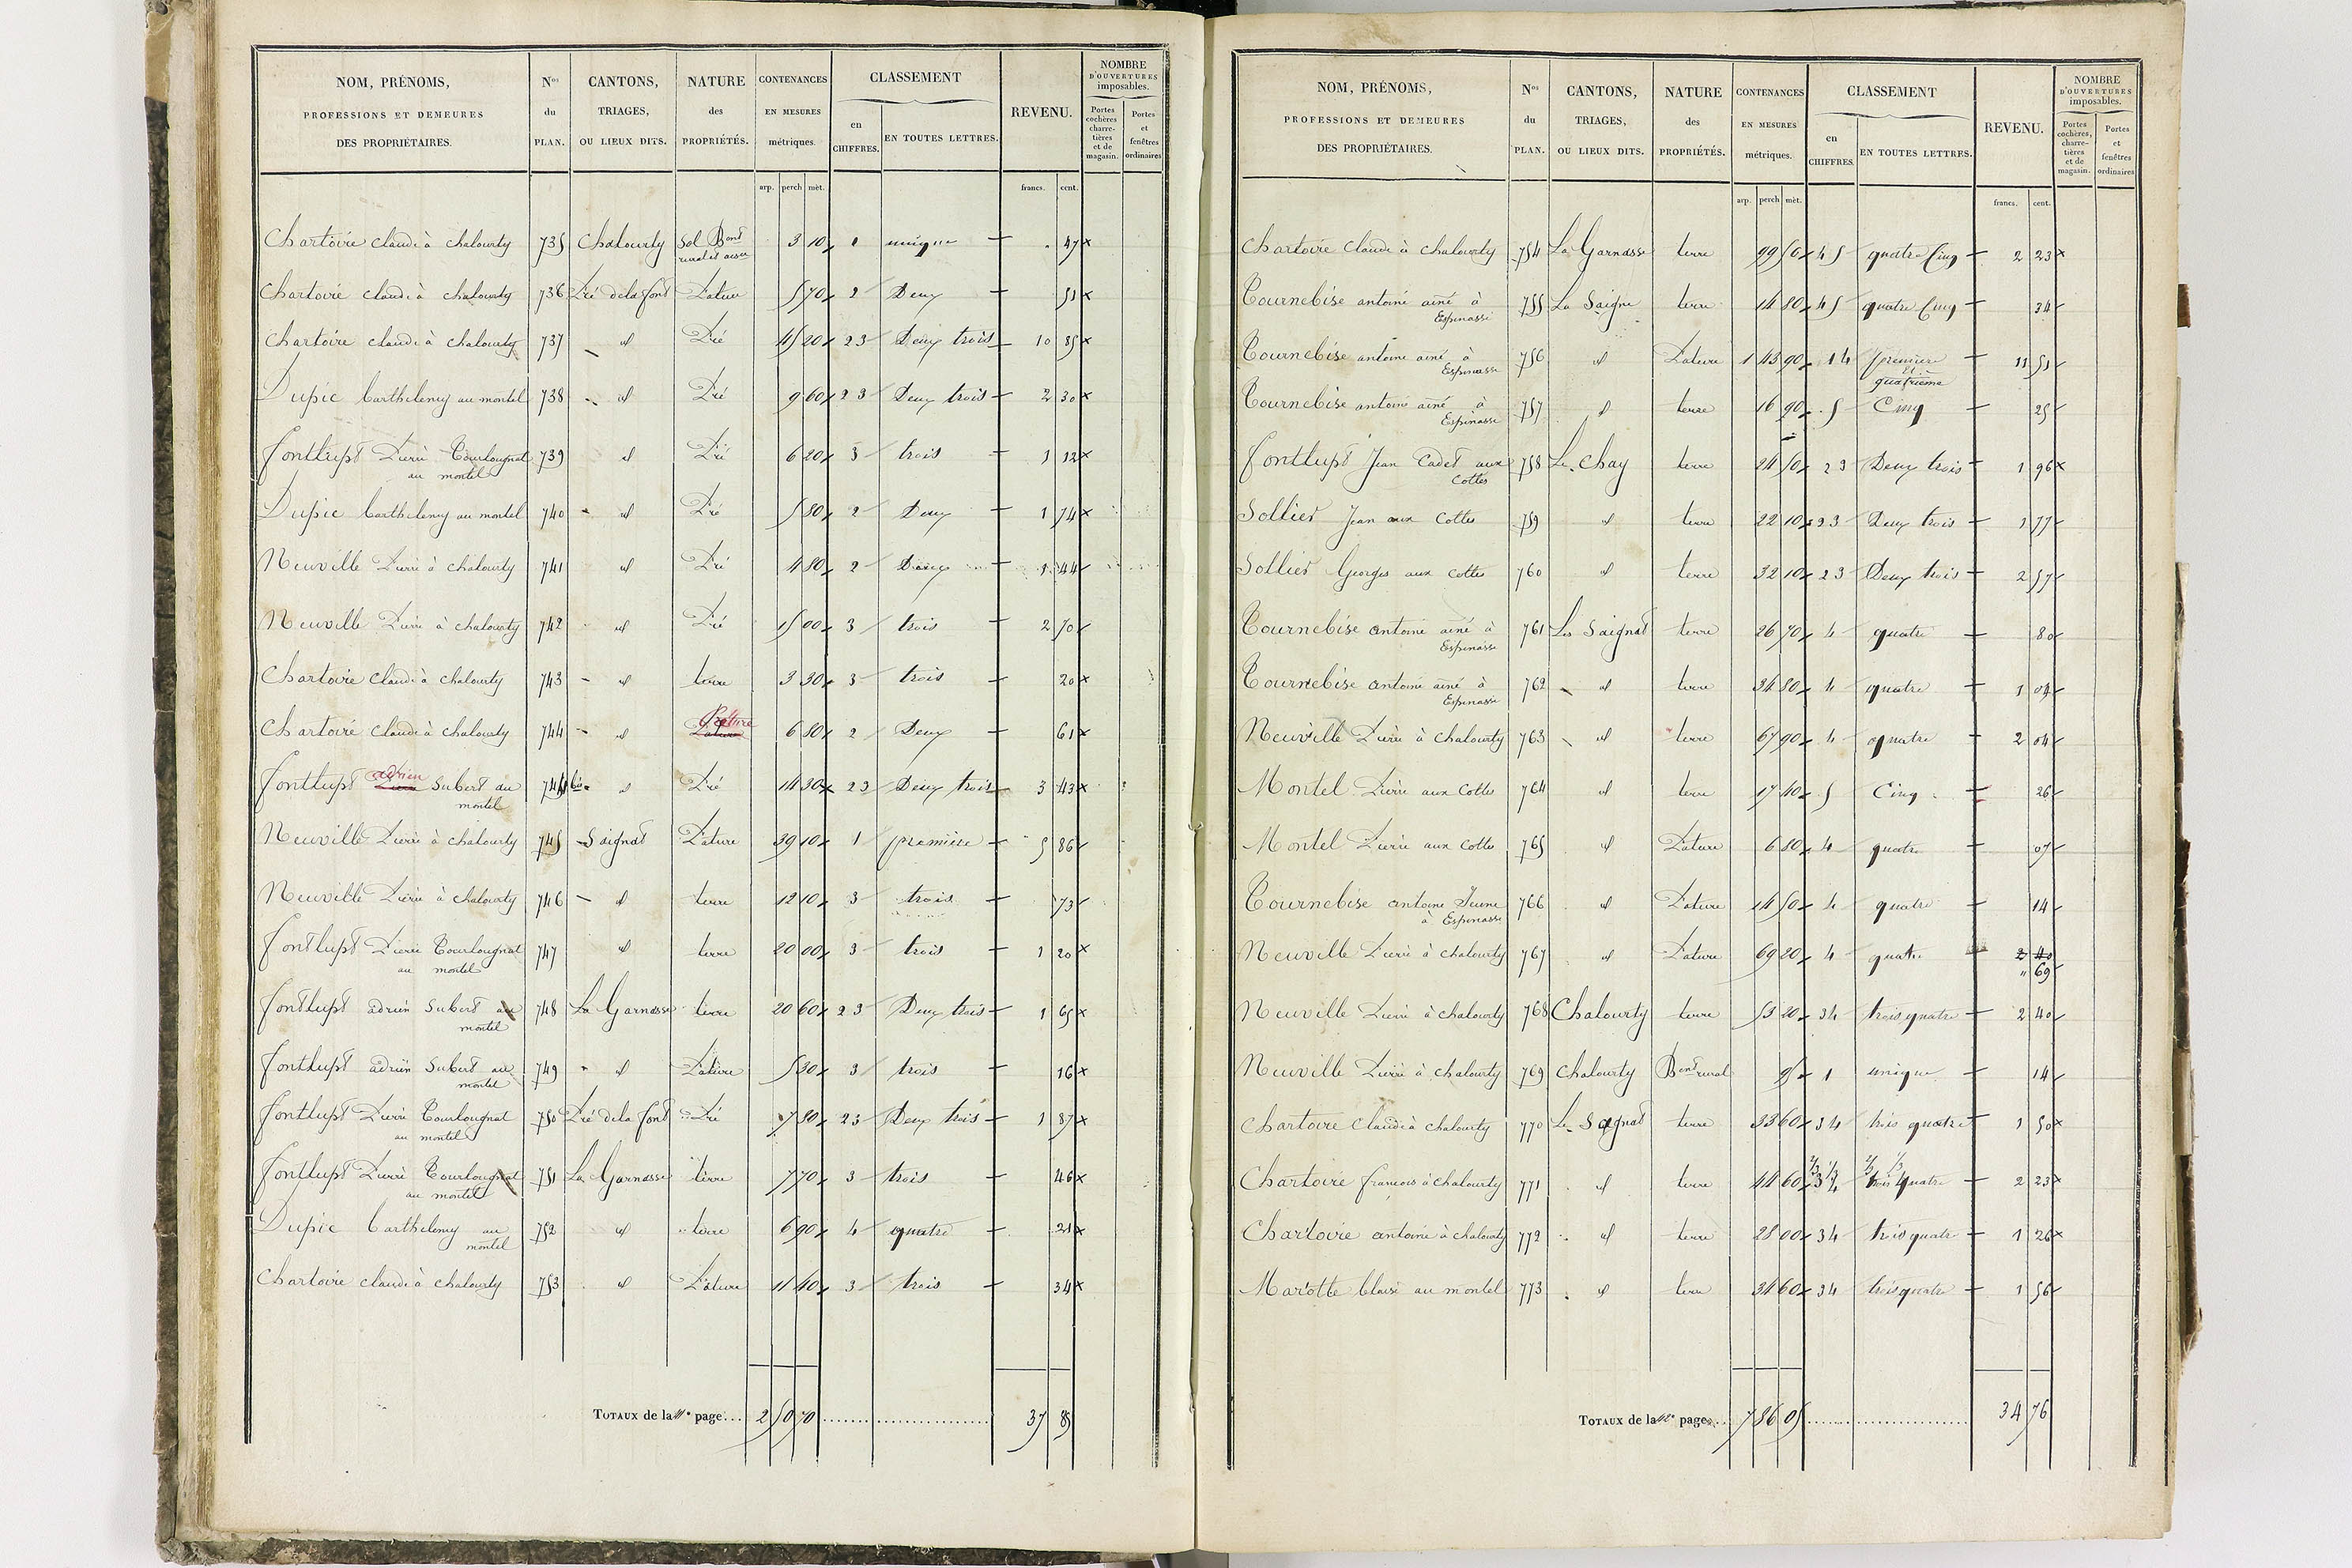 NOM, PRÉNOMS, PROFESSIONS ET DEMEURES DES PROPRIÉTAIRES. Nos du PLAN. CANTONS, TRIAGES, OU LIEUX DITS. NATURE des PROPRIÉTÉS. CONTENANCES EN MESURES métriques. CLASSEMENT en CHIFFRES. EN TOUTES LETTRES. REVENU. NOMBRE D'OUVERTURES imposables. Portes cochères, charretières et de magasin. Portes et fenêtres ordinaires
arp. perch mèt. francs. cent.
Chartoire claude à chalourty 735 Chalourty Sol Bont rural et aisu 3 10 1 unique 47
Chartoire claude à chalourty 736 Pré de la font Pature 5 70 2 Deux 51
Chartoire claude à chalourty 737 id Pré 45 20 2 3 Deux trois 10 85
Dupic barthelemy au montel 738 id Pré 9 60 2 3 Deux trois 2 30
fontlupt Pierre Tourlougnat 739 id Pré 6 20 3 trois 1 12
au montel
Dupic barthelemy au montel 740 id Pré 5 80 2 Deux 1 74
Neuville Pierre à chalourty 741 id Pré 4 80 2 Deux 1 44
Neuville Pierre à chalourty 742 id Pré 15 00 3 trois 2 70
Chartoire claude à chalourty 743 id terre 3 30 3 trois 20
Chartoire claude à chalourty 744 id Pature 6 80 2 Deux 61
fontlupt adrien Pierre Subert au 744 bis id Pré 14 30 2 3 Deux trois 3 43
montel
Neuville Pierre à chalourty 745 Saignat Pature 39 10 1 première 5 86
Neuville Pierre à chalourty 746 id terre 12 10 3 trois 73
fontlupt Pierre Tourlougnat 747 id terre 20 00 3 trois 1 20
au montel
fontlupt adrien Subert au 748 La Garnasse terre 20 60 2 3 Deux trois 1 65
montel
fontlupt adrien Subert au 749 id Pature 5 30 3 trois 16
montel
fontlupt Pierre Tourlougnat 750 Pré de la font Pré 7 80 2 3 Deux trois 1 87
au montel
fontlupt Pierre Tourlougnat 751 La Garnasse terre 7 70 3 trois 46
au montel
Dupic barthelemy au 752 id terre 6 90 4 quatre 21
montel
Chartoire claude à chalourty 753 id Pature 11 40 3 trois 34
TOTAUX de la 41e page.... 2 50 70 37 85
NOM, PRÉNOMS, PROFESSIONS ET DEMEURES DES PROPRIÉTAIRES. Nos du PLAN. CANTONS, TRIAGES, OU LIEUX DITS. NATURE des PROPRIÉTÉS. CONTENANCES EN MESURES métriques. CLASSEMENT en CHIFFRES. EN TOUTES LETTRES. REVENU. NOMBRE D'OUVERTURES imposables. Portes cochères, charretières et de magasin. Portes et fenêtres ordinaires
arp. perch mèt. francs. cent.
Chartoire Claude à chalourty 754 La Garnasse terre 99 50 4 5 quatre Cinq 2 23
Tournebise antoine ainé à 755 La Saigne terre 14 80 4 5 quatre Cinq 34
Espinasse
Tournebise antoine ainé à 756 id Pature 1 43 90 1 4 première 11 51
Espinasse et quatrième
Tournebise antoine ainé à 757 id terre 16 90 5 Cinq 25
Espinasse
fontlupt Jean Cadet aux 758 Le chay terre 24 50 2 3 Deux trois 1 96
Cottes
Sollier Jean aux Cottes 759 id terre 22 10 2 3 Deux trois 1 77
Sollier Georges aux cottes 760 id terre 32 10 2 3 Deux trois 2 57
Tournebise antoine ainé à 761 Les Saignat terre 26 70 4 quatre 80
Espinasse
Tournebise antoine ainé à 762 id terre 34 80 4 quatre 1 04
Espinasse
Neuville Pierre à chalourty 763 id terre 67 90 4 quatre 2 04
Montel Pierre aux Cottes 764 id terre 17 40 5 Cinq 26
Montel Pierre aux Cottes 765 id Pature 6 80 4 quatre 07
Tournebise antoine Jeune 766 id Pature 14 50 4 quatre 14
à Espinasse
Neuville Pierre à chalourty 767 id Pature 69 20 4 quatre 2 40
" 69
Neuville Pierre à chalourty 768 Chalourty terre 53 20 3 4 trois quatre 2 40
Neuville Pierre à chalourty 769 Chalourty Bont rural 95 1 unique 14
Chartoire Claude à chalourty 770 Le Saignat terre 33 60 3 4 trois quatre 1 50
Chartoire françois à chalourty 771 id terre 44 60 2/3 3 1/3 4 2/3 trois 1/3 quatre 2 23
Chartoire antoine à chalourty 772 id terre 28 00 3 4 trois quatre 1 26
Marotte blaise au montel 773 id terre 34 60 3 4 trois quatre 1 56
TOTAUX de la 42e page.... 7 86 05 34 76